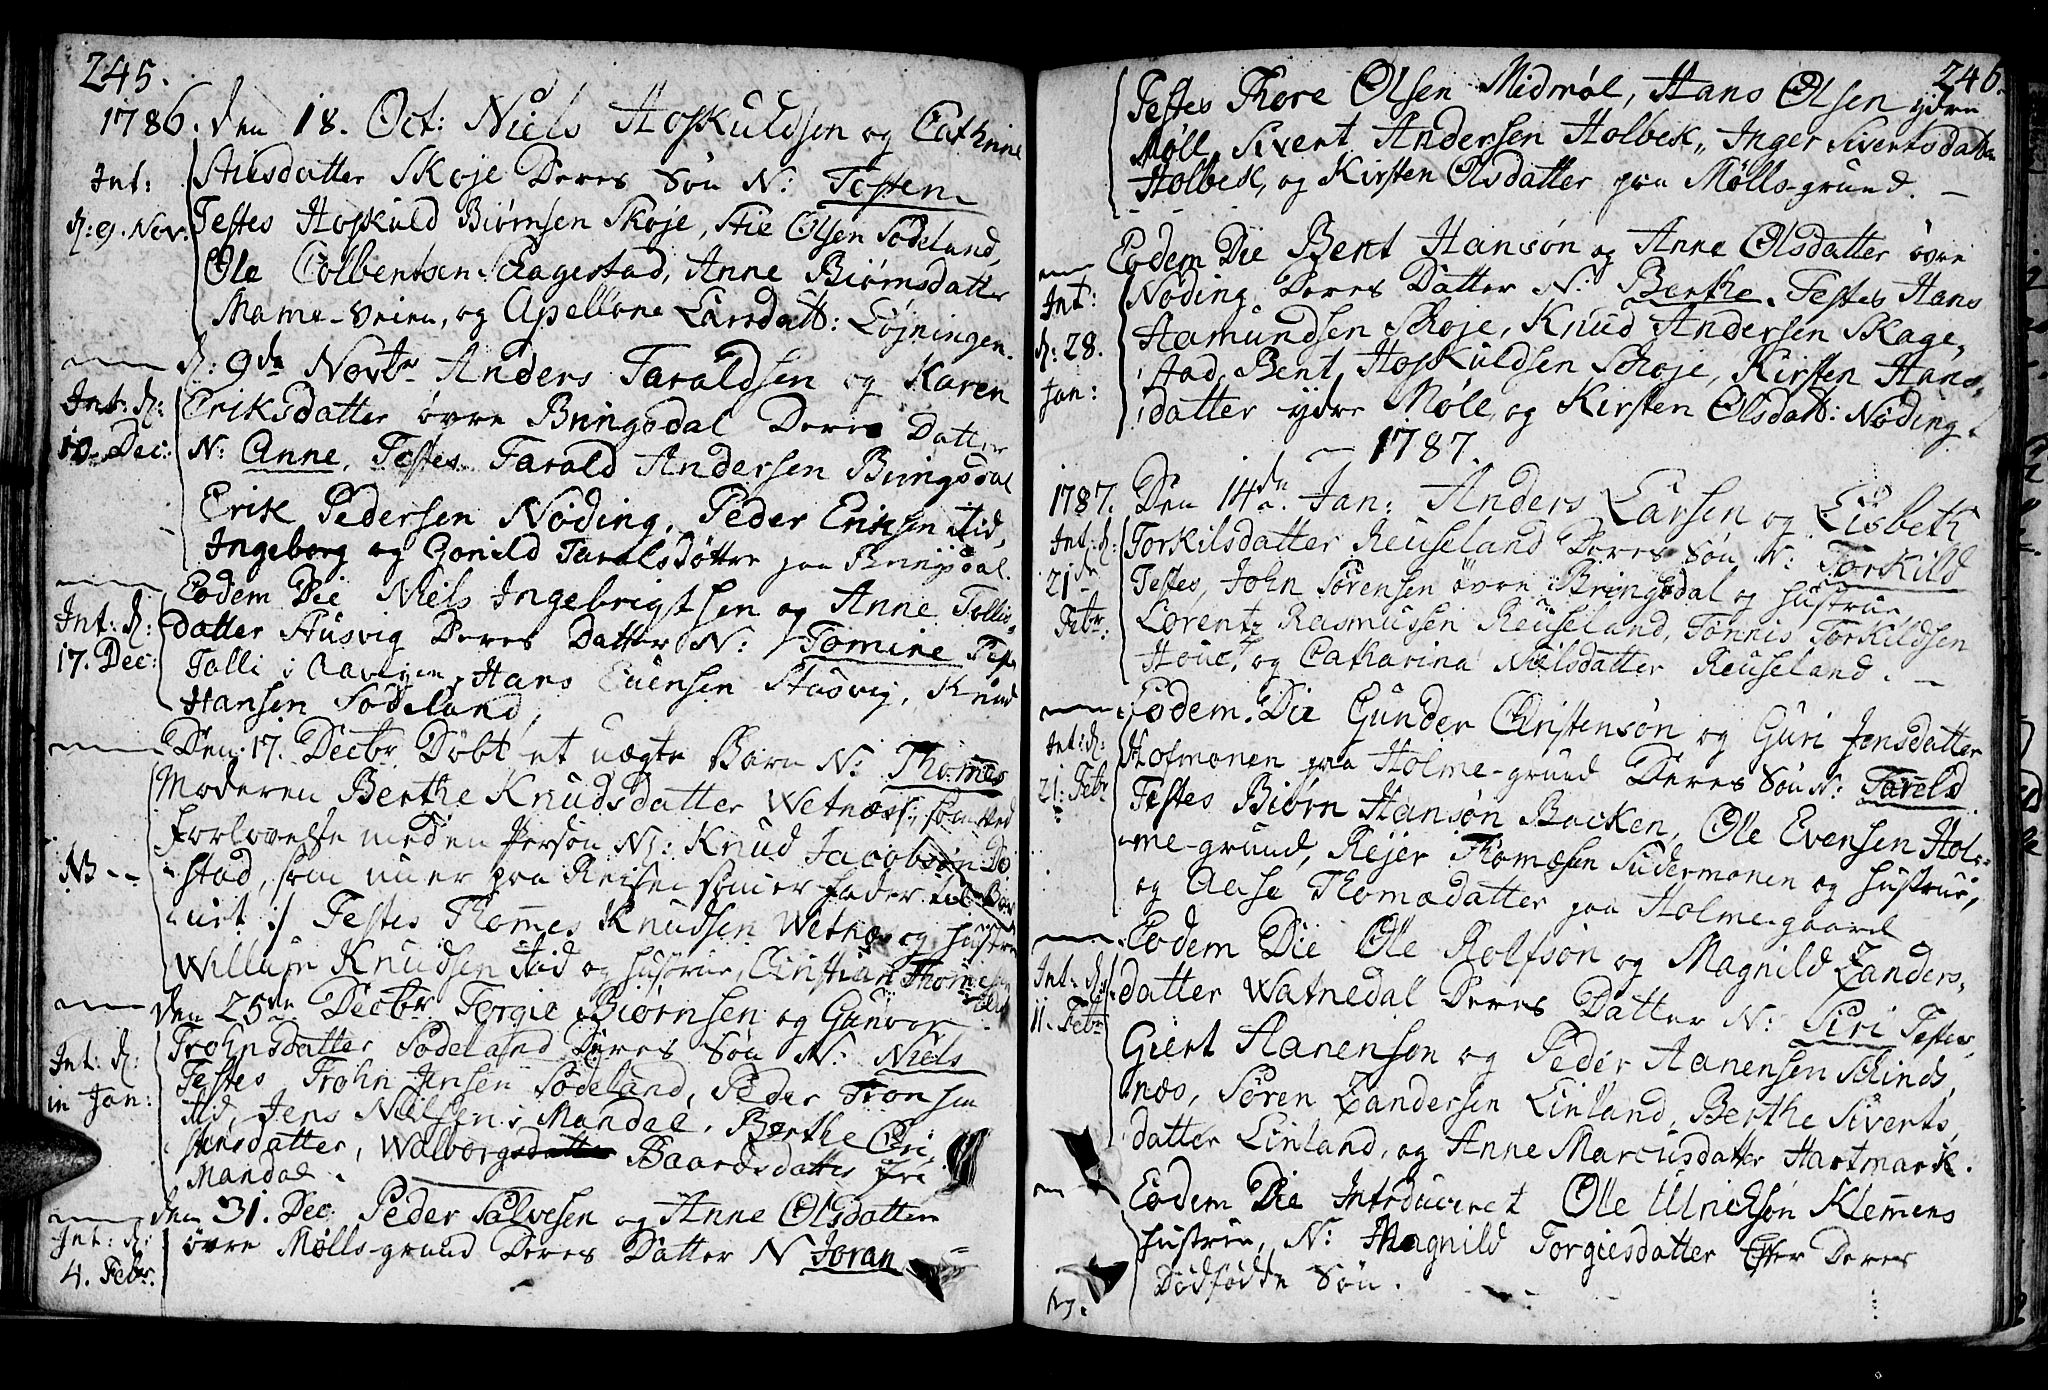 245.
1786. den 18. Oct: Niels Hoskuldsen og Cathrine
Int: Stiesdatter Skøje Deres Søn N: Tosten
d: 9. Nov. Testes Hoskuld Biørnsen Skøje, Stie Olsen Sødeland,
Ole Colbentsen Schagestad, Anne Biørnsdatter
Mame-veien, og Apellone Larsdatt: Løjningen.
d: 9de Novbr Anders Taraldsen og Karen
Int: d: Eriksdatter øvre Bringsdal Deres Datter
10. Dec: N: Anne, Testes Tarald Andersen Bringsdal
Erik Pedersen Nøding, Peder Eriksen ibid,
Ingeborg og Gonild Taralsdøttre paa Bringsdal.
Eodem Die Niels Ingebrigtsen og Anne Tollis-
Int: d: datter Stusvig Deres Datter N: Tomine Test
17. Dec: Tolli i Aavigen, Hans Evensen Stusvig, Knud
Hansen Sødeland,
Den 17. Decbr Døbt et uægte Barn N: Thomes
Moderen Berthe Knudsdatter Wetnæs, som sted
forlovelse med en Person N: Knud Jacobsøn
NB -- stad, som nu er paa Reiser som er fader til Bar
net :/ Testes Thomes Knudsen Wetnæs og hustru
Willum Knudsen ibid og hustrue, Christian Thomesen
ibid
den 25de Decbr Torgie Biørnsen og Gunvor
Int: d: Trohnsdatter Sødeland Deres Søn N: Niels
Testes Trohn Jensen Sødeland, Peder Tronsen
in Jan: ibid, Jens Nielsen i Mandal, Berthe Chri-
stensdatter, Walborgsdatter Baardsdatter fra
Mandal.
den 31. Dec: Peder Salvesen og Anne Olsdatter
Int: d: øvre Mølls-grund Deres Datter N Joran
4. Febr.
246.
Testes Thore Olsen Midmøl, Hans Olsen ydre
Møll, Sivert Andersen Holbek, Inger Sivertsdatter
Holbek, og Kirsten Olsdatter paa Mølls-grund. -
Eodem Die Bent Hansøn og Anne Olsdatter øvre
Int: Nøding, Deres Datter N: Berthe. Testes Hans
d: 28. Hamundsen Schøje, Knud Andersen Skage-
stad, Bent Hoskuldsen Schøje, Kirsten Hans-
Jan: datter ydre Møll, og Kirsten Olsdatt: Nøding.
1787.
1787. Den 14de Jan: Anders Larsen og Lisbeth
Int: d: Torkilsdatter Reuseland Deres Søn N: Torkild
21de Testes, John Sørensen øvre Bringsdal og hustrue,
Febr: Lorentz Rasmussen Reuseland, Tønnis Torkildsen
Houe, og Catharina Nielsdatter Reuseland. -
Eodem Die Gunder Christensøn og Guri Jensdatter
Int: d: Hofmonen paa Holme-grund Deres Søn N: Tareld
21: Febr Testes Biørn Hansøn Backen, Ole Evensen Hol-
me-grund, Rejer Thomesen Sudermonen og hustrue,
og Aase Thomædatter paa Holme-gaard
Eodem Die Ole Rolfsøn og Magnild Zanders-
Int: d: datter Watnedal Deres Datter N: Siri Testes,
11. Febr Giert Aanensøn og Peder Aanensen Schinds-
næs, Søren Zandersen Linland, Berthe Siverts-
datter Linland, og Anne Marcusdatter Hartmark.
Eodem Die Introduceret Ole Ulrichsøn Klemens
hustrue, N: Magnild Torgiesdatter Efter Deres
Dødfødde Søn.